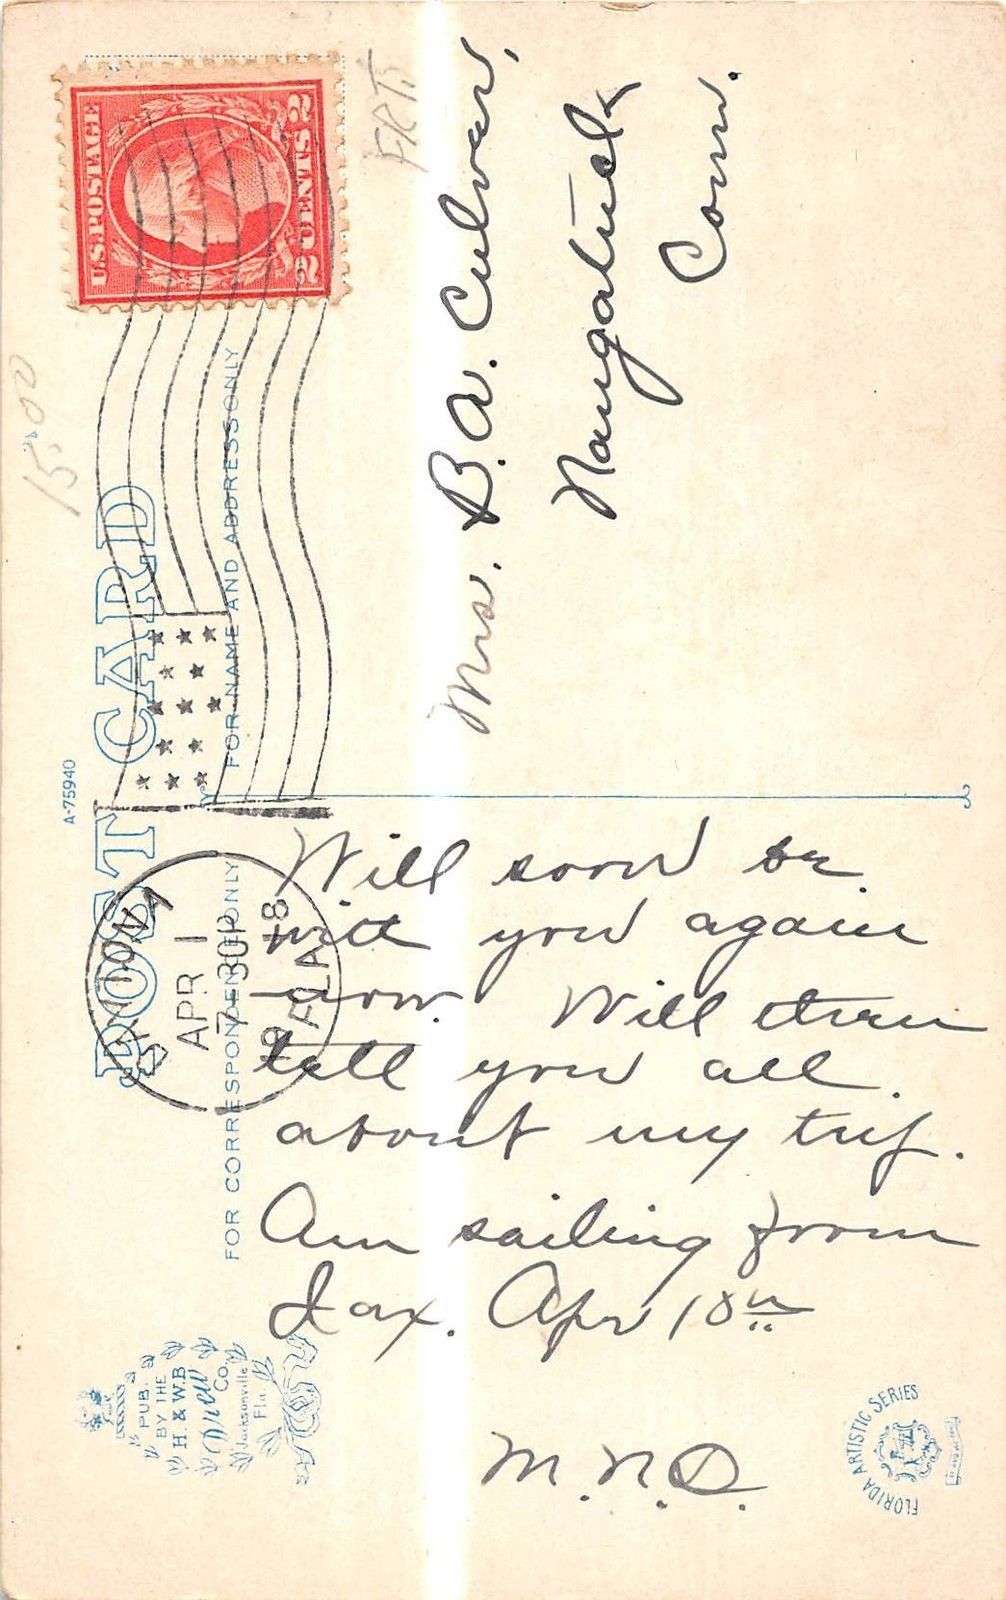 POST CARD
A-75940
FOR CORRESPONDENCE ONLY
FOR NAME AND ADDRESS ONLY
U.S. POSTAGE
2 CENTS 2
APR 1
7-30P
1918
FLA
STATION
15.00
Mrs. B. A. Culver,
Naugatuck
Conn.
Will soon be
with you again
now. Will then
tell you all
about my trip.
Am sailing from
Jax. Apr 10th
M.N.O.
PUB.
BY THE
H. & W.B.
Drew
Co.
Jacksonville
Fla.
FLORIDA ARTISTIC SERIES